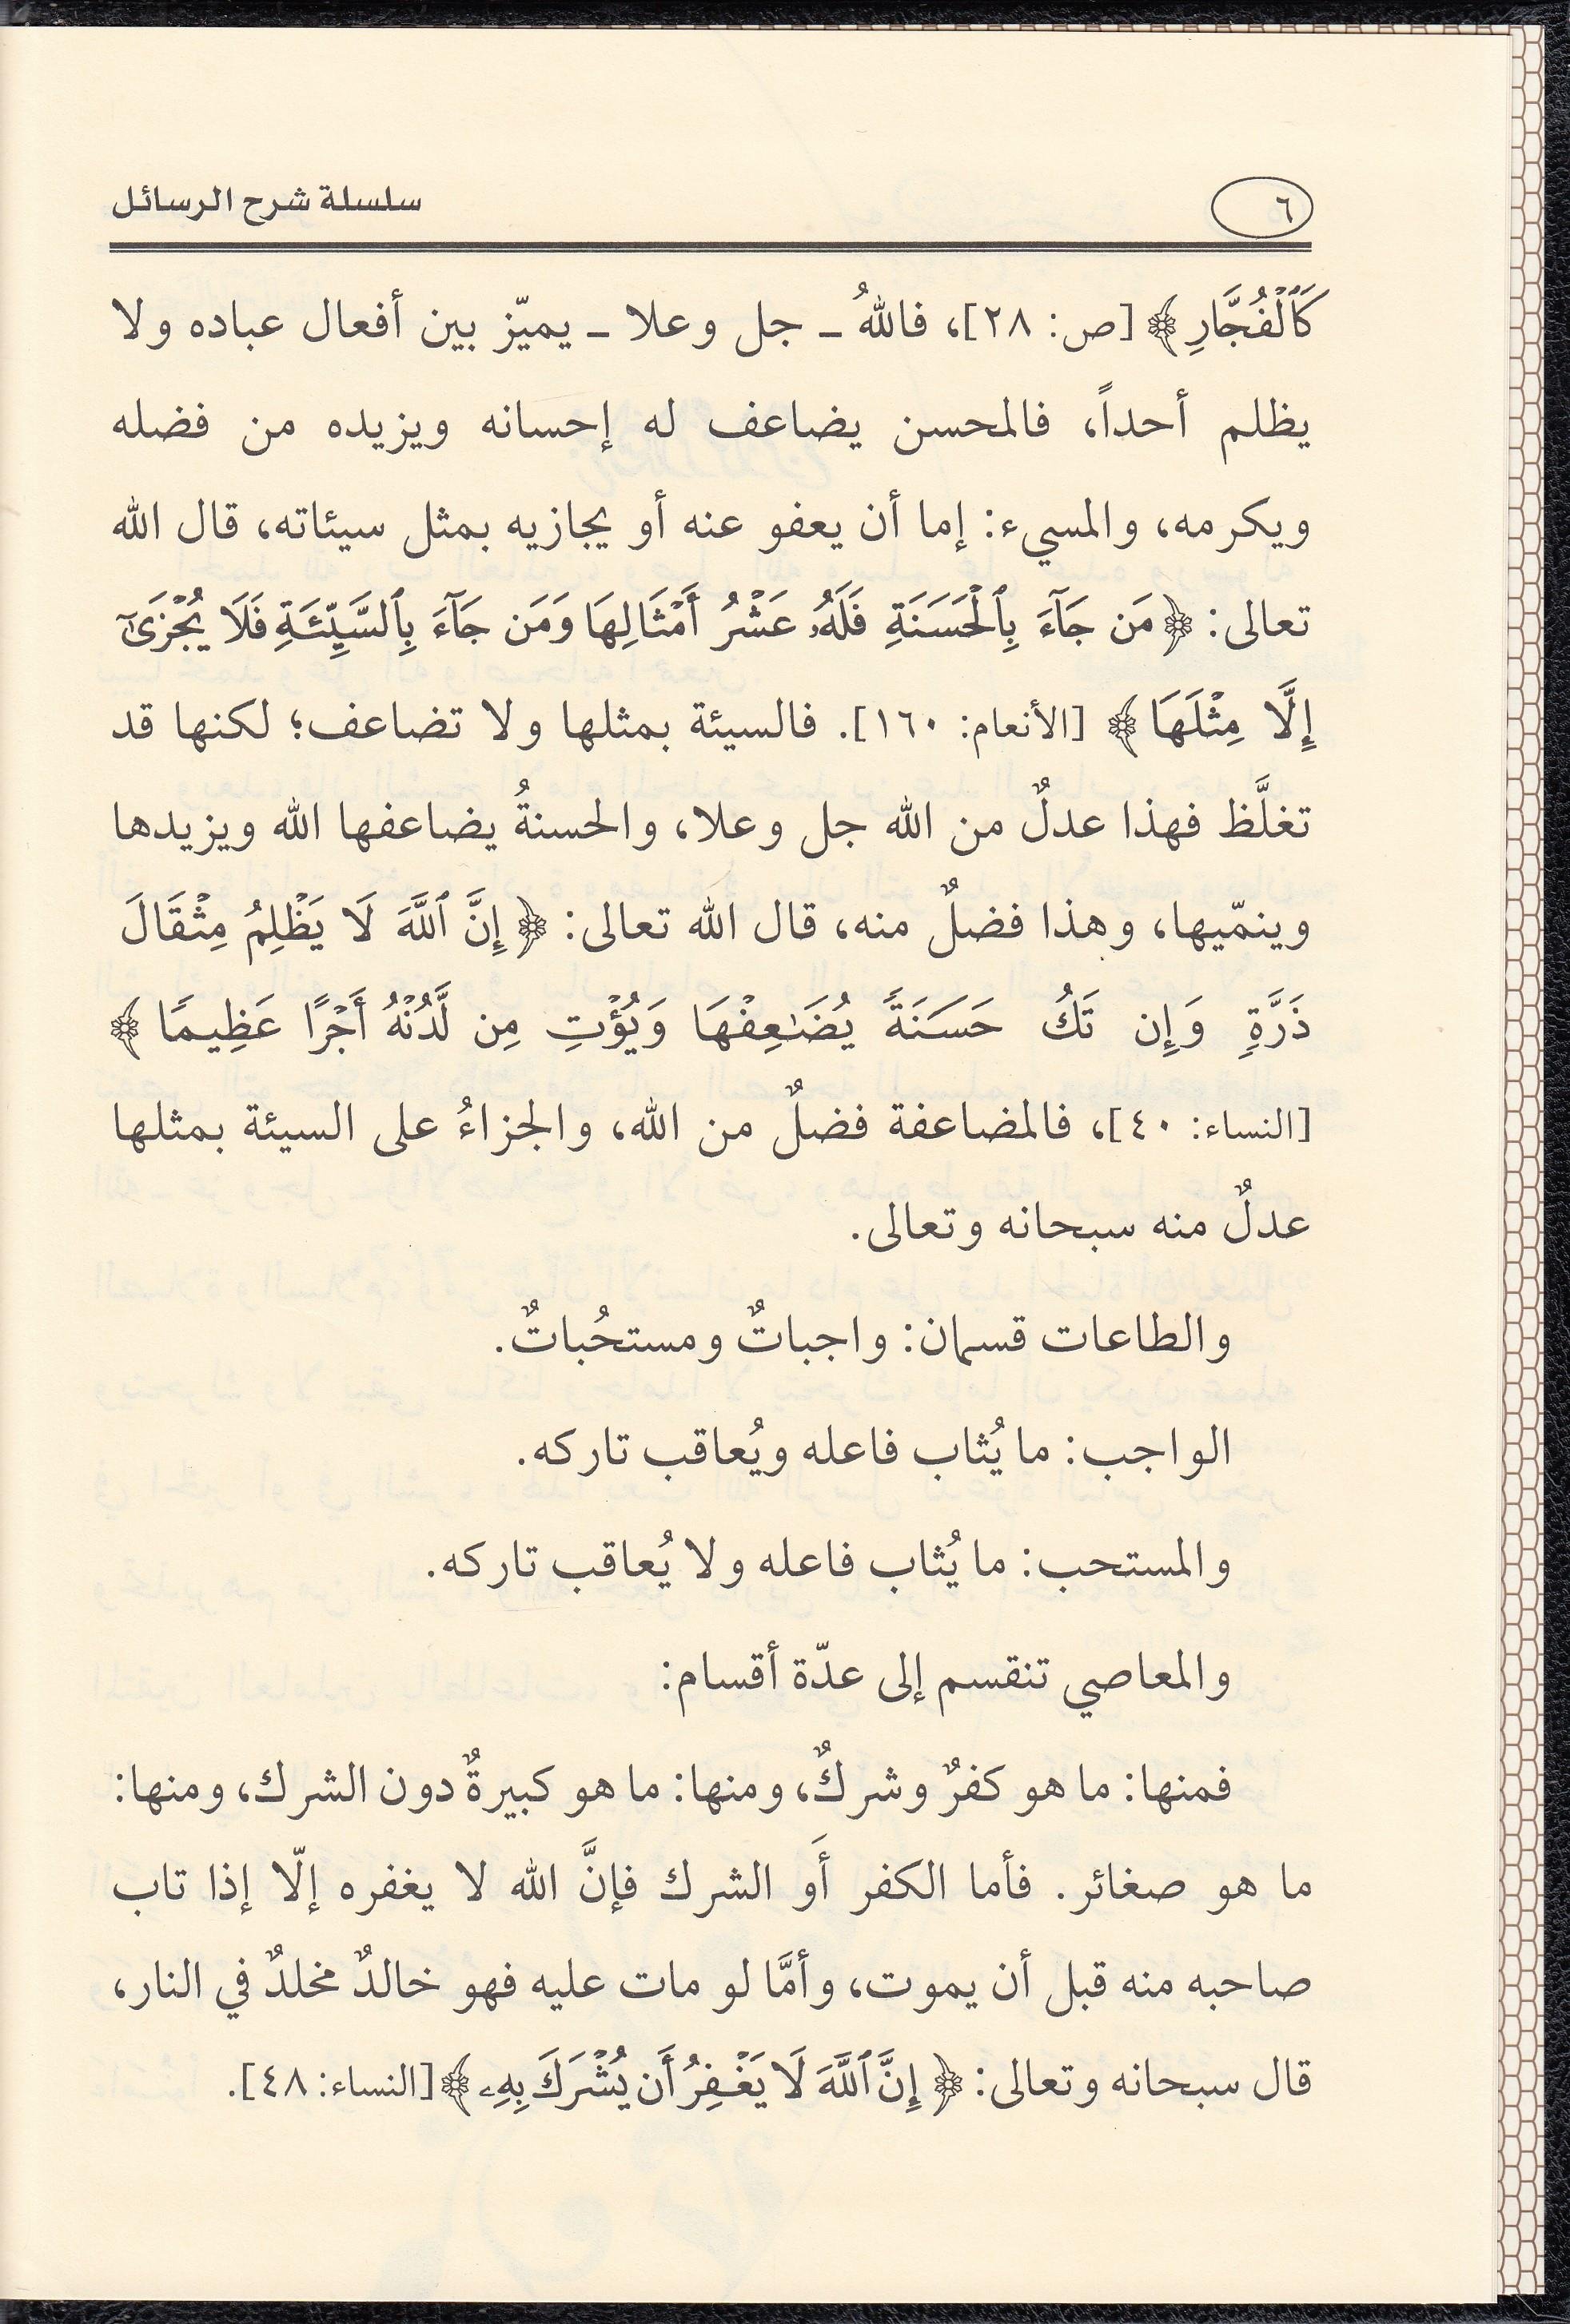 ٦
سلسلة شرح الرسائل
كَٱلْفُجَّارِ ﴾ [ص: ٢٨]، فاللهُ ـ جل وعلا ـ يميّز بين أفعال عباده ولا
يظلم أحداً، فالمحسن يضاعف له إحسانه ويزيده من فضله
ويكرمه، والمسيء: إما أن يعفو عنه أو يجازيه بمثل سيئاته، قال الله
تعالى: ﴿ مَن جَآءَ بِٱلْحَسَنَةِ فَلَهُۥ عَشْرُ أَمْثَالِهَا وَمَن جَآءَ بِٱلسَّيِّئَةِ فَلَا يُجْزَىٰٓ
إِلَّا مِثْلَهَا ﴾ [الأنعام: ١٦٠]. فالسيئة بمثلها ولا تضاعف؛ لكنها قد
تغلَّظ فهذا عدلٌ من الله جل وعلا، والحسنةُ يضاعفها الله ويزيدها
وينمّيها، وهذا فضلٌ منه، قال الله تعالى: ﴿ إِنَّ ٱللَّهَ لَا يَظْلِمُ مِثْقَالَ
ذَرَّةٍ وَإِن تَكُ حَسَنَةً يُضَٰعِفْهَا وَيُؤْتِ مِن لَّدُنْهُ أَجْرًا عَظِيمًا ﴾
[النساء: ٤٠]، فالمضاعفة فضلٌ من الله، والجزاءُ على السيئة بمثلها
عدلٌ منه سبحانه وتعالى.
والطاعات قسمان: واجباتٌ ومستحُباتٌ.
الواجب: ما يُثاب فاعله ويُعاقب تاركه.
والمستحب: ما يُثاب فاعله ولا يُعاقب تاركه.
والمعاصي تنقسم إلى عدّة أقسام:
فمنها: ما هو كفرٌ وشركٌ، ومنها: ما هو كبيرةٌ دون الشرك، ومنها:
ما هو صغائر. فأما الكفر أَو الشرك فإنَّ الله لا يغفره إلّا إذا تاب
صاحبه منه قبل أن يموت، وأمَّا لو مات عليه فهو خالدٌ مخلدٌ في النار،
قال سبحانه وتعالى: ﴿ إِنَّ ٱللَّهَ لَا يَغْفِرُ أَن يُشْرَكَ بِهِۦ ﴾ [النساء: ٤٨].